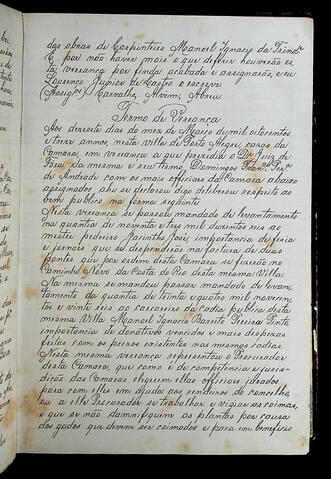 das obras de Carpinteiro Manoel Ignacio da Trind.e
E por não haver mais o que deferir houverão es
ta vereança por finda acabada e assignarão, e eu
Lourenço Junior de Castro o escrevi
Assig.os Carvalho, Alvim, Abreu
Termo de Vereança
Aos dezesete dias do mez de Março de mil oitocentos
e treze annos, nesta villa de Porto Alegre, caza da
Camara, em vereança a que presidia o D.r Juiz de
Fora da mesma e seu termo, Domingos Fran.co
de Andrade com os mais officiaes da Camara abaixo
assignados ahi se declarou digo deliberou respeito ao
bem publico na forma seguinte
Nesta vereança se passou mandado de levantamento
na quantia de noventa e tres mil duzentos reis ao
mestre pedreiro Jacintho José, importancia de feria
e jornaes que se despenderão na factura de duas
pontes que por ordem desta Camara se fizerão no
Caminho Novo da Costa do Rio desta mesma Villa.
Na mesma se mandou passar mandado de levan
tamento da quantia de trinta e quatro mil novecen
tos e vinte reis ao carcereiro da cadea publica desta
mesma Villa Manoel Ignacio Pinto
importancia de donativos vencidos e mais despezas
feitas com os prezos existentes nas mesmas cadeas.
Nesta mesma vereança reprezentou o Procurador
desta Camara, que como é de competencia e juris-
dição das Camaras elegerem ellas officiaes
para com elle em ajuda aos rendeiros do concelho
ou a elle Procurador se trabalhar e vigiar as coimas,
e que se não damnifiquem as plantas por causa
dos gados que devem ser coimados e para em beneficio